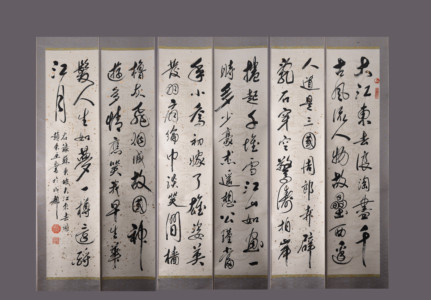 大江東去浪淘盡千
古風流人物故壘西邊
人道是三國周郎赤壁
亂石穿空驚濤拍岸
捲起千堆雪江山如畫一
時多少豪杰遙想公瑾當
年小喬初嫁了雄姿英
發羽扇綸巾談笑間檣
櫓灰飛煙滅故國神
遊多情應笑我早生華
髮人生如夢一樽還酹
江月
右錄蘇東坡大江東去詞